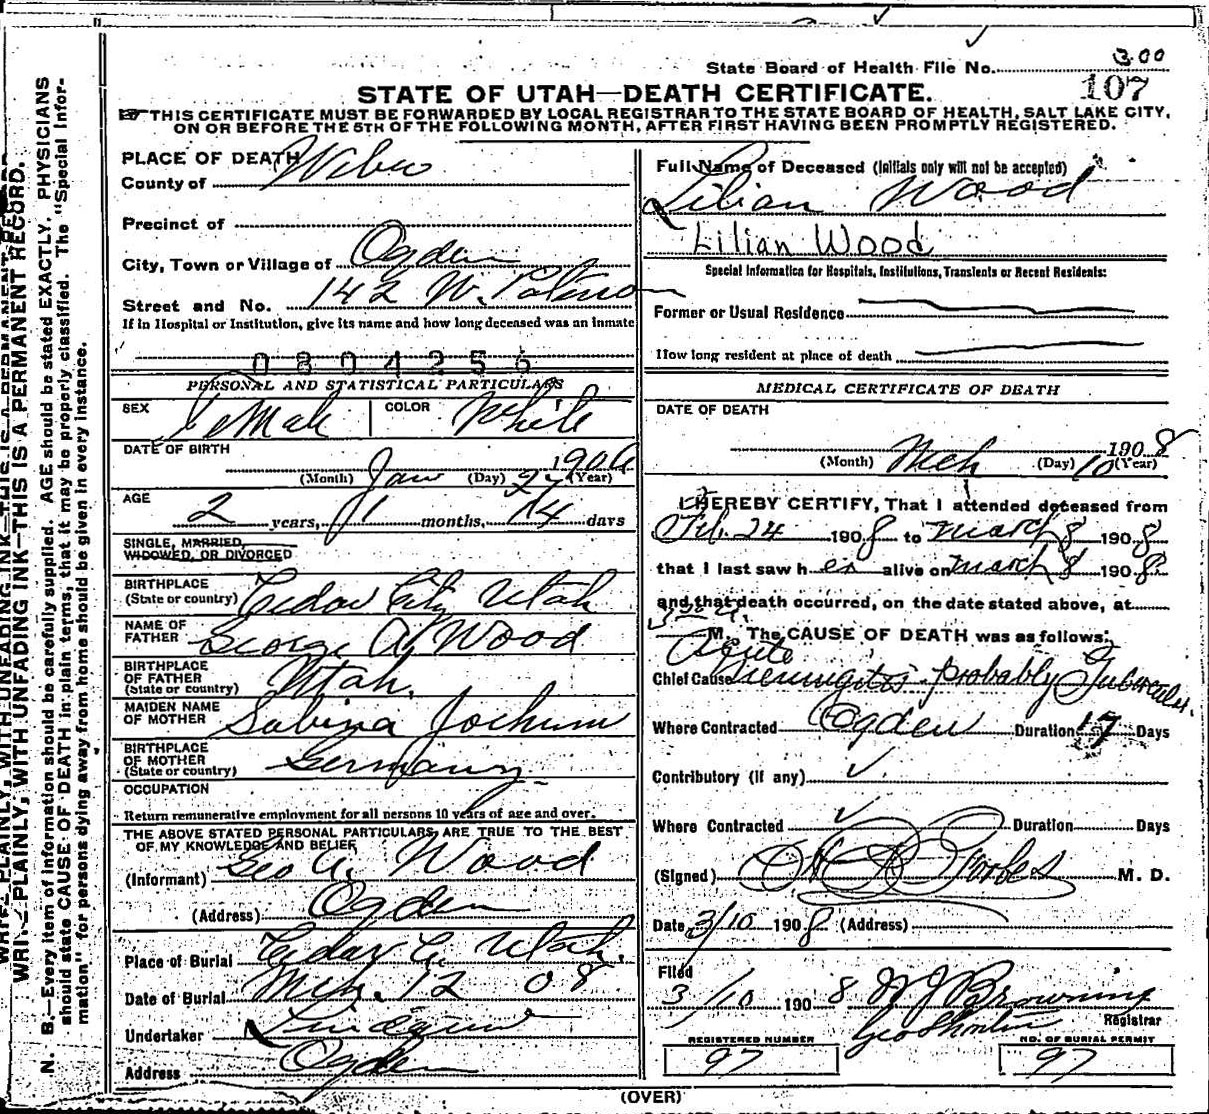 State Board of Health File No. 300
107
STATE OF UTAH—DEATH CERTIFICATE.
THIS CERTIFICATE MUST BE FORWARDED BY LOCAL REGISTRAR TO THE STATE BOARD OF HEALTH, SALT LAKE CITY,
ON OR BEFORE THE 5TH OF THE FOLLOWING MONTH, AFTER FIRST HAVING BEEN PROMPTLY REGISTERED.
PLACE OF DEATH
County of Weber
Precinct of
City, Town or Village of Ogden
Street and No. 142 W. Patterson
If in Hospital or Institution, give its name and how long deceased was an inmate
0804256
PERSONAL AND STATISTICAL PARTICULARS
SEX Female COLOR White
DATE OF BIRTH
(Month) Jan (Day) 27 (Year) 1906
AGE
2 years, 1 months, 14 days
SINGLE, MARRIED,
WIDOWED, OR DIVORCED
BIRTHPLACE
(State or country) Cedar City Utah
NAME OF
FATHER George A. Wood
BIRTHPLACE
OF FATHER
(State or country) Utah.
MAIDEN NAME
OF MOTHER Sabina Jochum
BIRTHPLACE
OF MOTHER
(State or country) Germany
OCCUPATION
Return remunerative employment for all persons 10 years of age and over.
THE ABOVE STATED PERSONAL PARTICULARS, ARE TRUE TO THE BEST
OF MY KNOWLEDGE AND BELIEF
(Informant) Geo A. Wood
(Address) Ogden
Place of Burial Cedar C. Utah.
Date of Burial Mch. 12 08
Undertaker Lindquist
Address Ogden
Full Name of Deceased (Initials only will not be accepted)
Lilian Wood
Lilian Wood
Special Information for Hospitals, Institutions, Transients or Recent Residents:
Former or Usual Residence
How long resident at place of death
MEDICAL CERTIFICATE OF DEATH
DATE OF DEATH
(Month) Mch (Day) 10 1908 (Year)
I HEREBY CERTIFY, That I attended deceased from
Feb. 24 1908 to March 8 1908
that I last saw her alive on March 8 1908
and that death occurred, on the date stated above, at
M. The CAUSE OF DEATH was as follows:
Acute
Chief Cause Meningitis probably Tubercular.
Where Contracted Ogden Duration 17 Days
Contributory (if any)
Where Contracted Duration Days
(Signed) M. D.
Date 3/10 1908 (Address)
Filed
3/10 1908 W J Browning
Registrar
REGISTERED NUMBER
97
NO. OF BURIAL PERMIT
97
(OVER)
WRITE PLAINLY, WITH UNFADING INK—THIS IS A PERMANENT RECORD.
N. B.—Every item of information should be carefully supplied. AGE should be stated EXACTLY. PHYSICIANS
should state CAUSE OF DEATH in plain terms, that it may be properly classified. The "Special Infor-
mation" for persons dying away from home should be given in every instance.